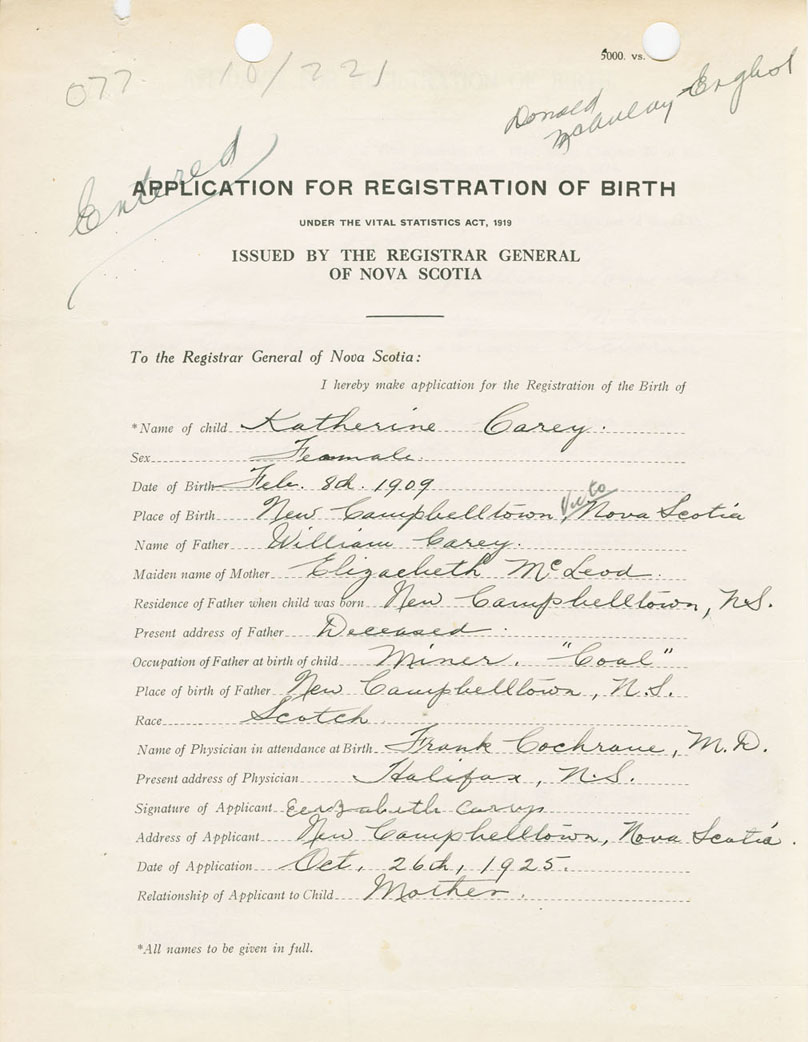 5000. vs.
077 10/221
Donald
McAulay Englisht
Entered
APPLICATION FOR REGISTRATION OF BIRTH
UNDER THE VITAL STATISTICS ACT, 1919
ISSUED BY THE REGISTRAR GENERAL
OF NOVA SCOTIA
To the Registrar General of Nova Scotia:
I hereby make application for the Registration of the Birth of
*Name of child Katherine Carey.
Sex Feamale.
Date of Birth Feb. 8th. 1909
Place of Birth New Campbelltown, Victo Nova Scotia
Name of Father William Carey.
Maiden name of Mother Elizacbeth McLeod.
Residence of Father when child was born New Campbelltown, N.S.
Present address of Father Deceased.
Occupation of Father at birth of child Miner. "Coal"
Place of birth of Father New Campbelltown, N.S.
Race Scotch
Name of Physician in attendance at Birth Frank Cochrane, M.D.
Present address of Physician Halifax, N.S.
Signature of Applicant
Address of Applicant New Campbelltown, Nova Scotia.
Date of Application Oct, 26th, 1925.
Relationship of Applicant to Child Mother.
*All names to be given in full.